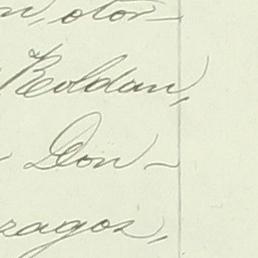 n, otor-
Roldan,
Gon-
zagos,